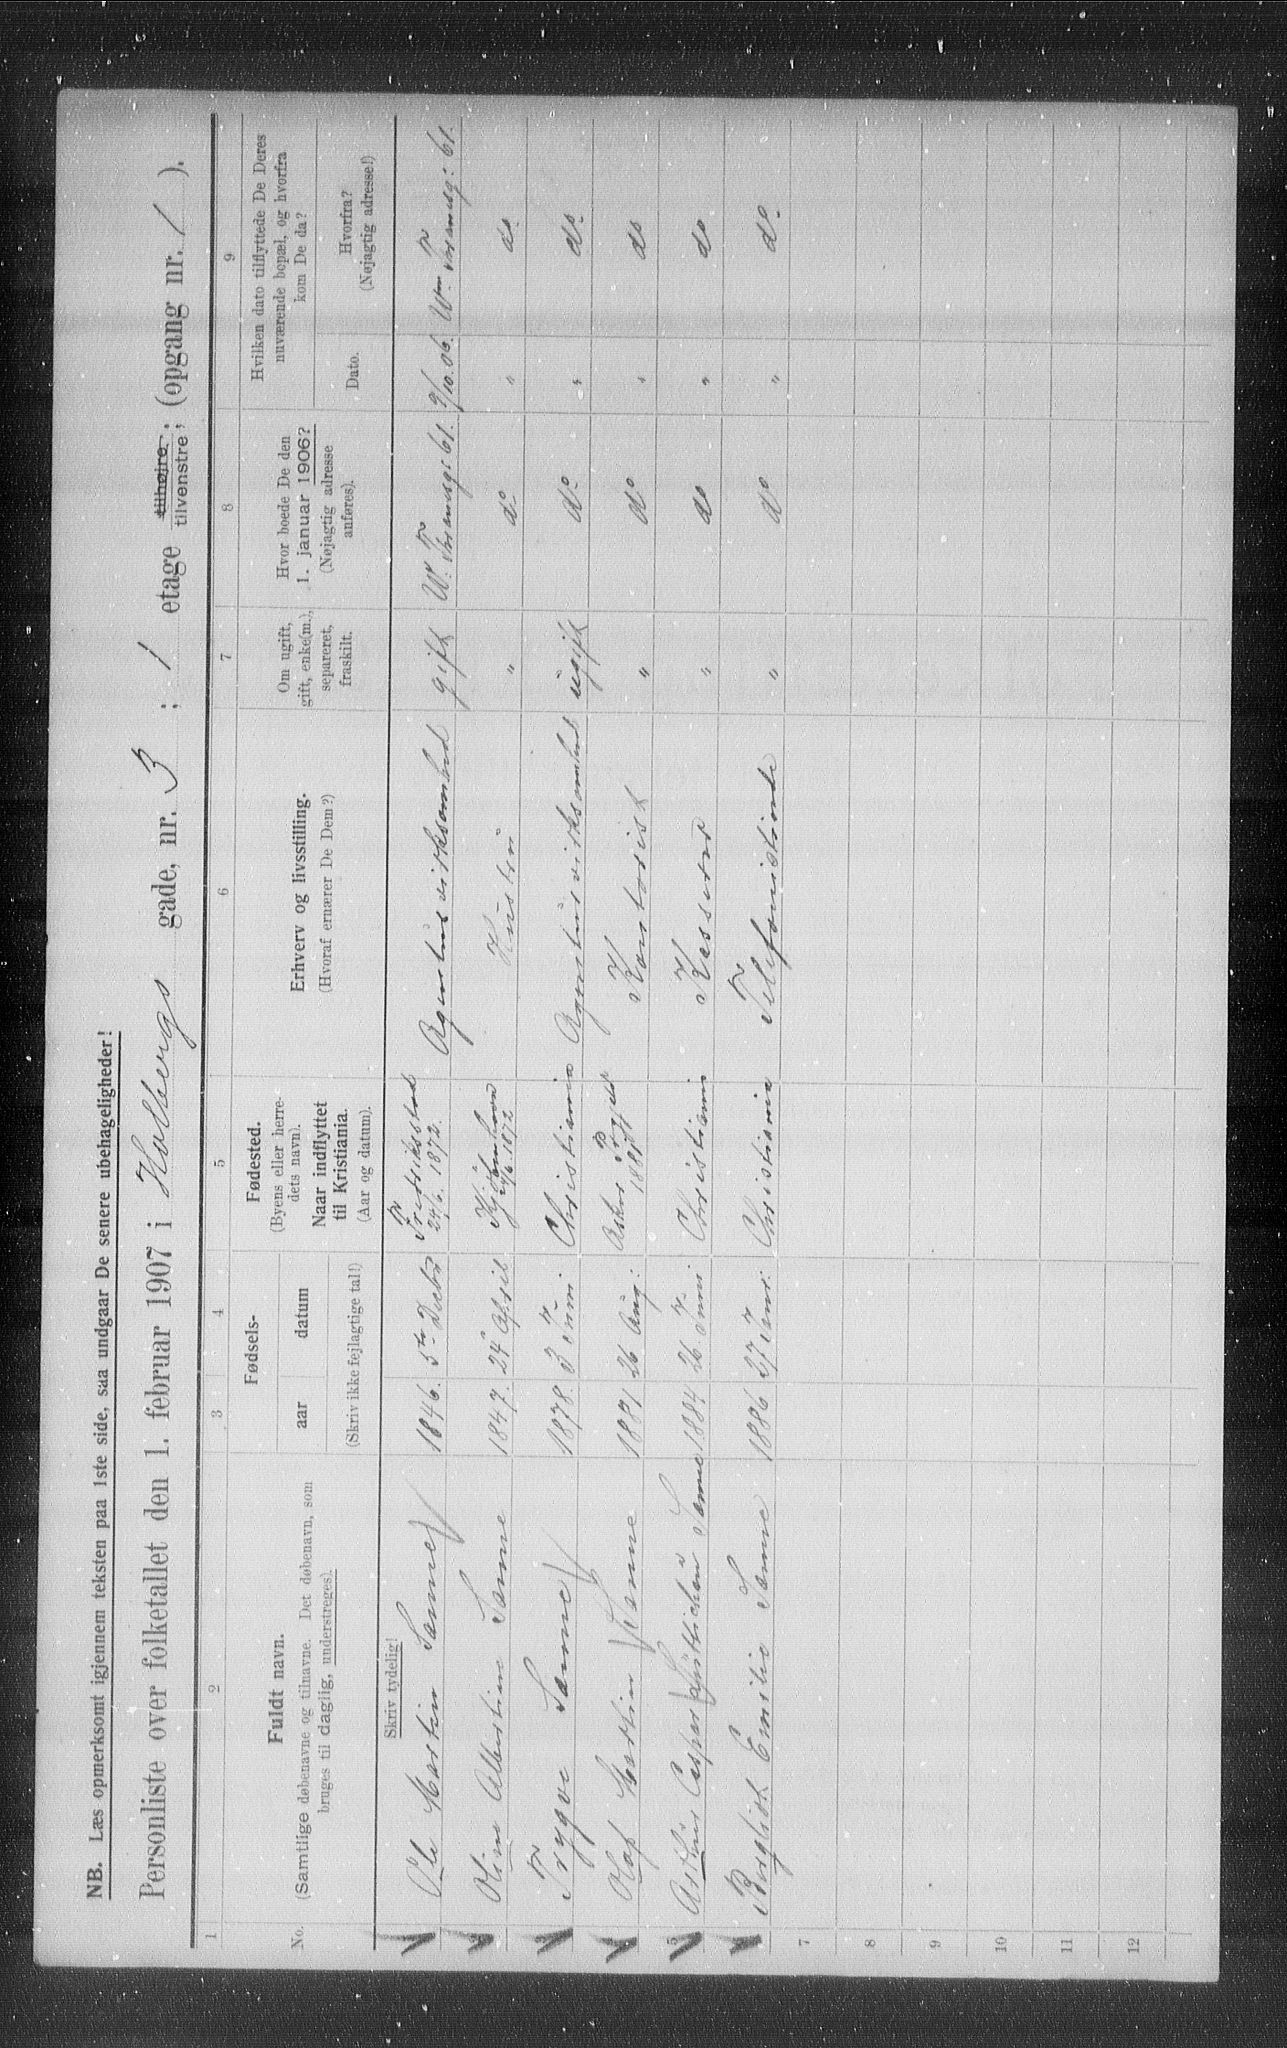 NB. Læs opmerksomt igjennem teksten paa 1ste side, saa undgaar De senere ubehageligheder!
Personliste over folketallet den 1. februar 1907 i Holbergs gade, nr. 3 ; 1 etage tilhøjre, tilvenstre, (opgang nr. 1 ).
1 2 3 4 5 6 7 8 9
No. Fuldt navn. (Samtlige døbenavne og tilnavne. Det døbenavn, som bruges til daglig, understreges).
Fødsels- aar datum (Skriv ikke fejlagtige tal!)
Fødested. (Byens eller herredets navn). Naar indflyttet til Kristiania. (Aar og datum).
Erhverv og livsstilling. (Hvoraf ernærer De Dem?)
Om ugift, gift, enke(m.), separeret, fraskilt.
Hvor boede De den 1. januar 1906? (Nøjagtig adresse anføres).
Hvilken dato tilflyttede De Deres nuværende bopæl, og hvorfra kom De da?
Dato. Hvorfra? (Nøjagtig adresse!)
Skriv tydelig!
Ole Martin Sanne 1846. 5te Decbr Fredriksstad 24/6. 1872. Agenturvirksomhed gift 9/10.06.
Oline Albertine Sanne 1847. 24 April 1872 Hustru " do " do
3 Trygve Sanne 1878. 3 Juni Christiania Agenturvirksomhed ugift do " do
Olaf Martin Sanne 1881 26 Aug: Asker Kontorist " do " do
5 Casper Sanne 1884 26 Juni Christiania Kasserer " do " do
Emilie Sanne 1886 27 Christiania Telefonistinde " do " do
7
8
9
10
11
12